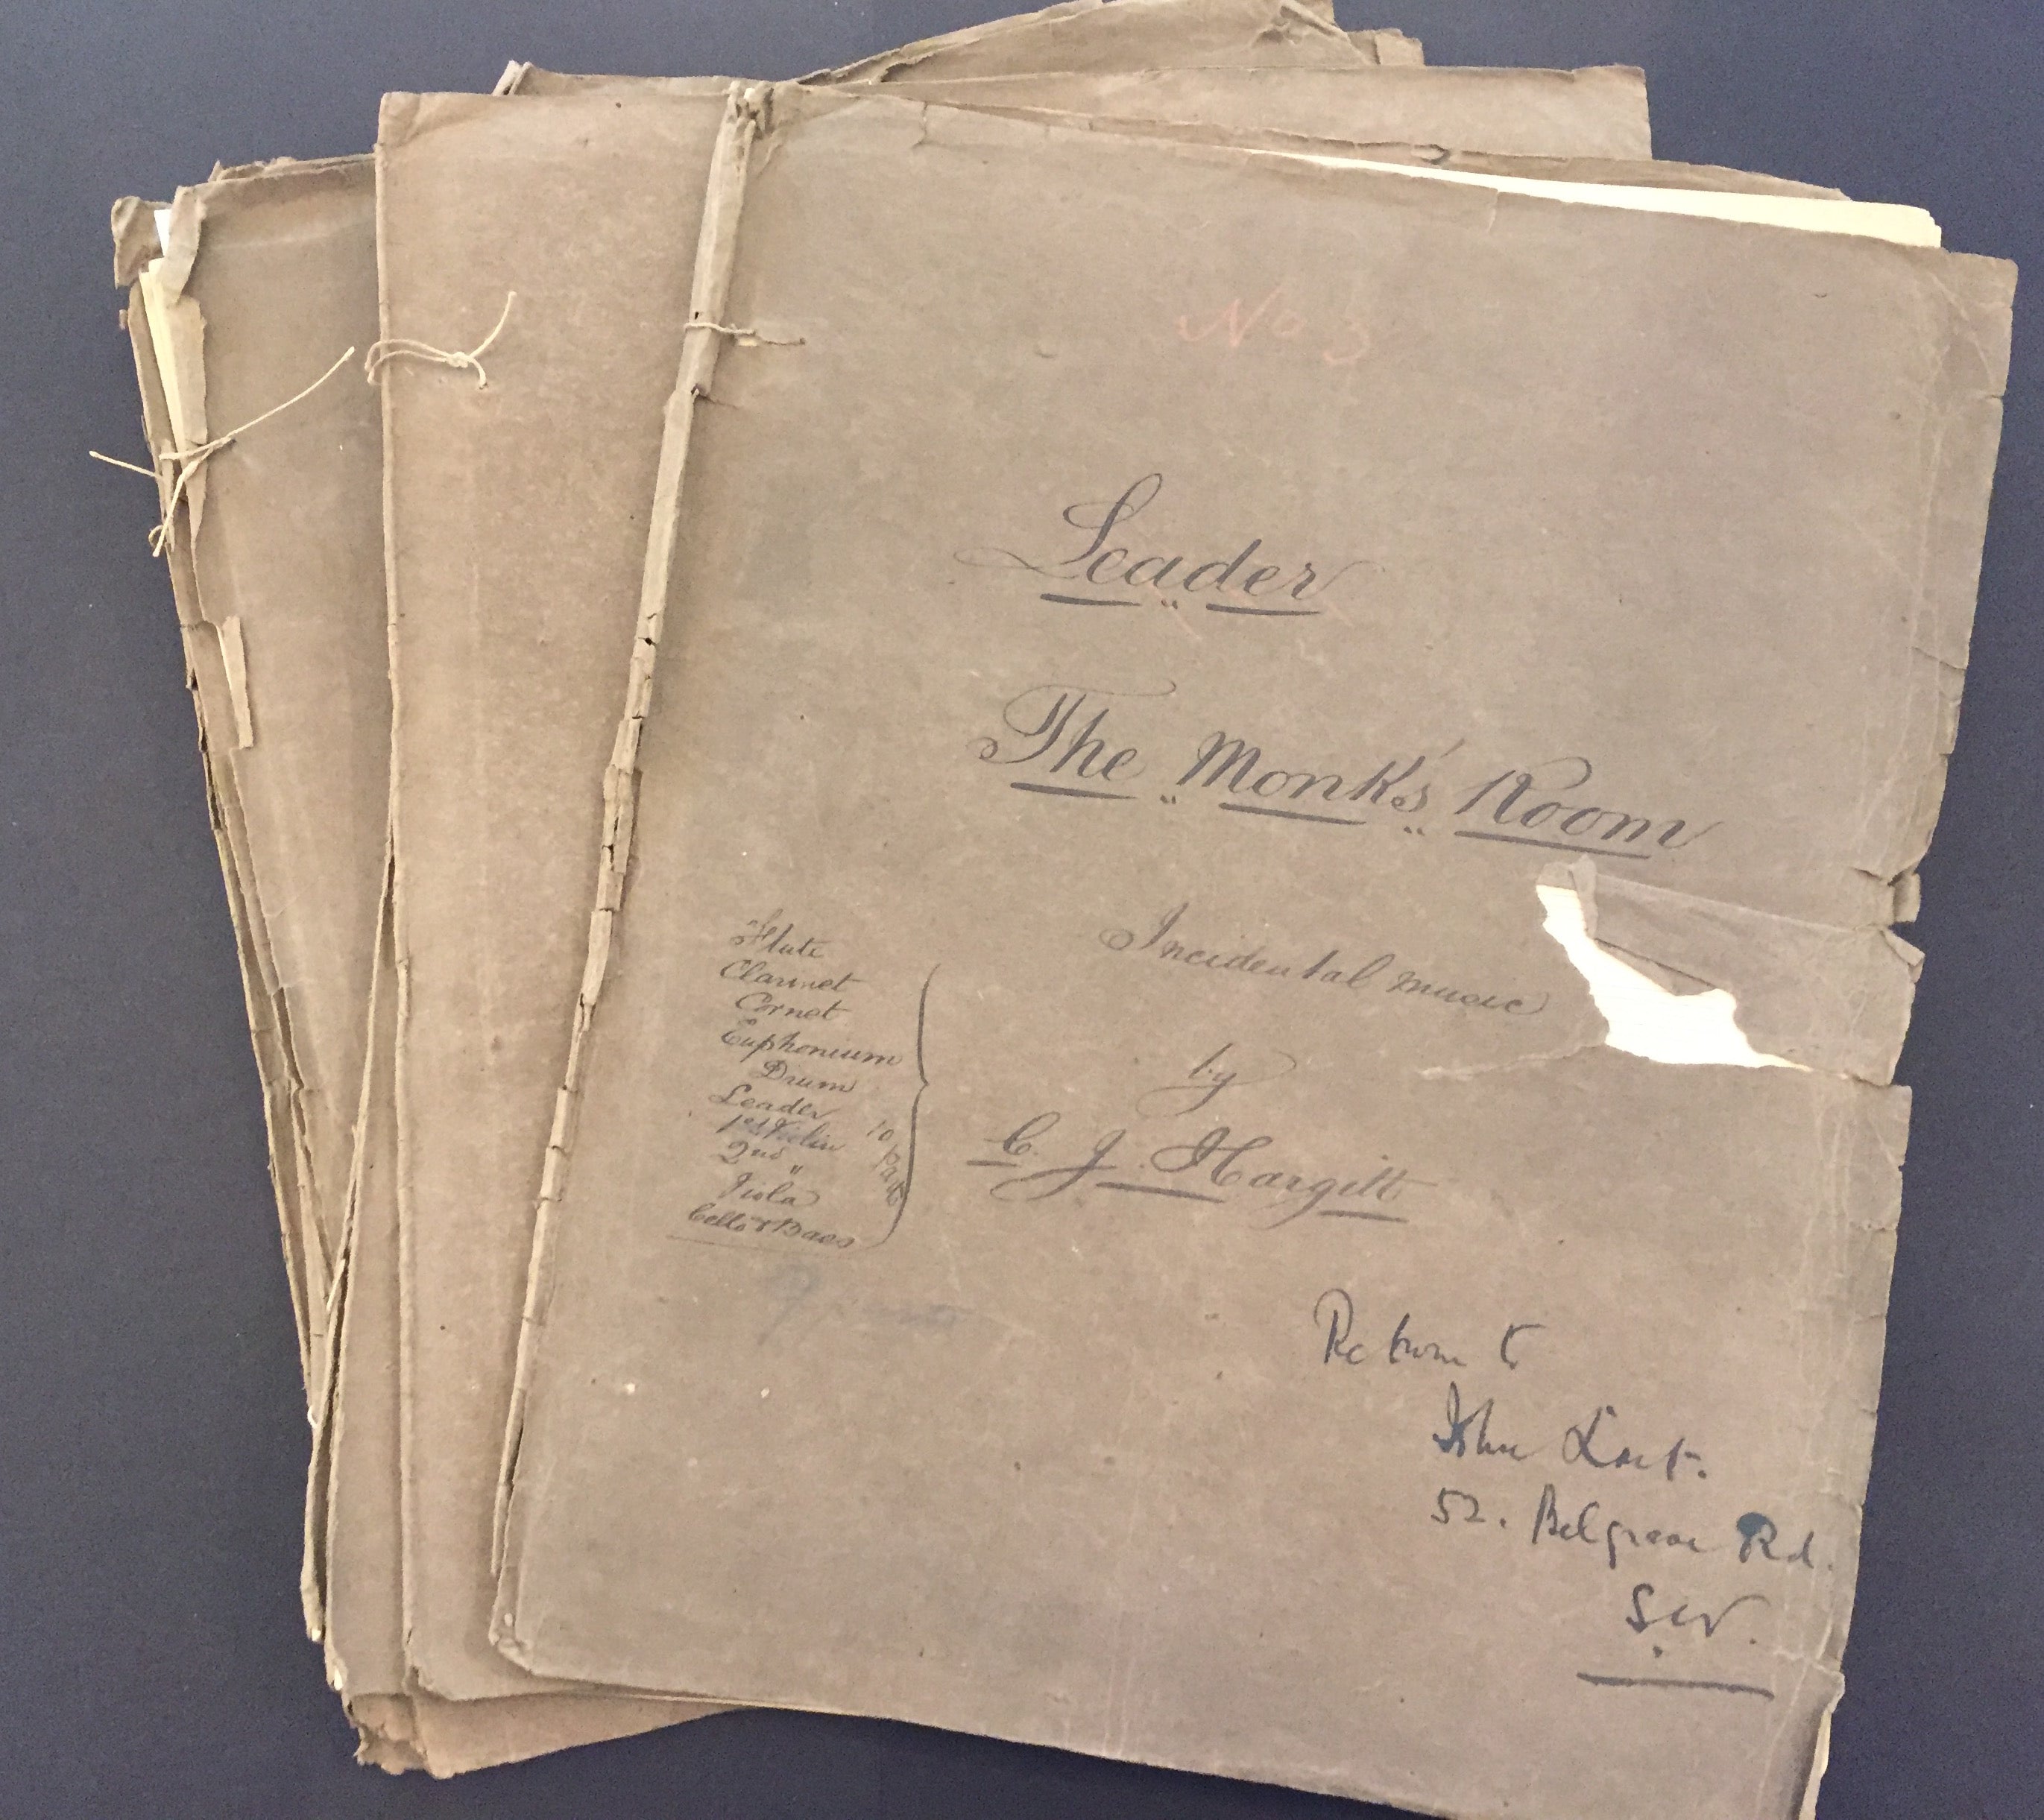 No 3
Leader
The Monk's Room
Incidental music
by
C. J. Hargitt
Flute
Clarinet
Cornet
Euphonium
Drum
Leader
1st Violin
2nd "
Viola
Cello & Bass
10 parts
Return to
John Lart.
52. Belgrave Rd.
S.W.